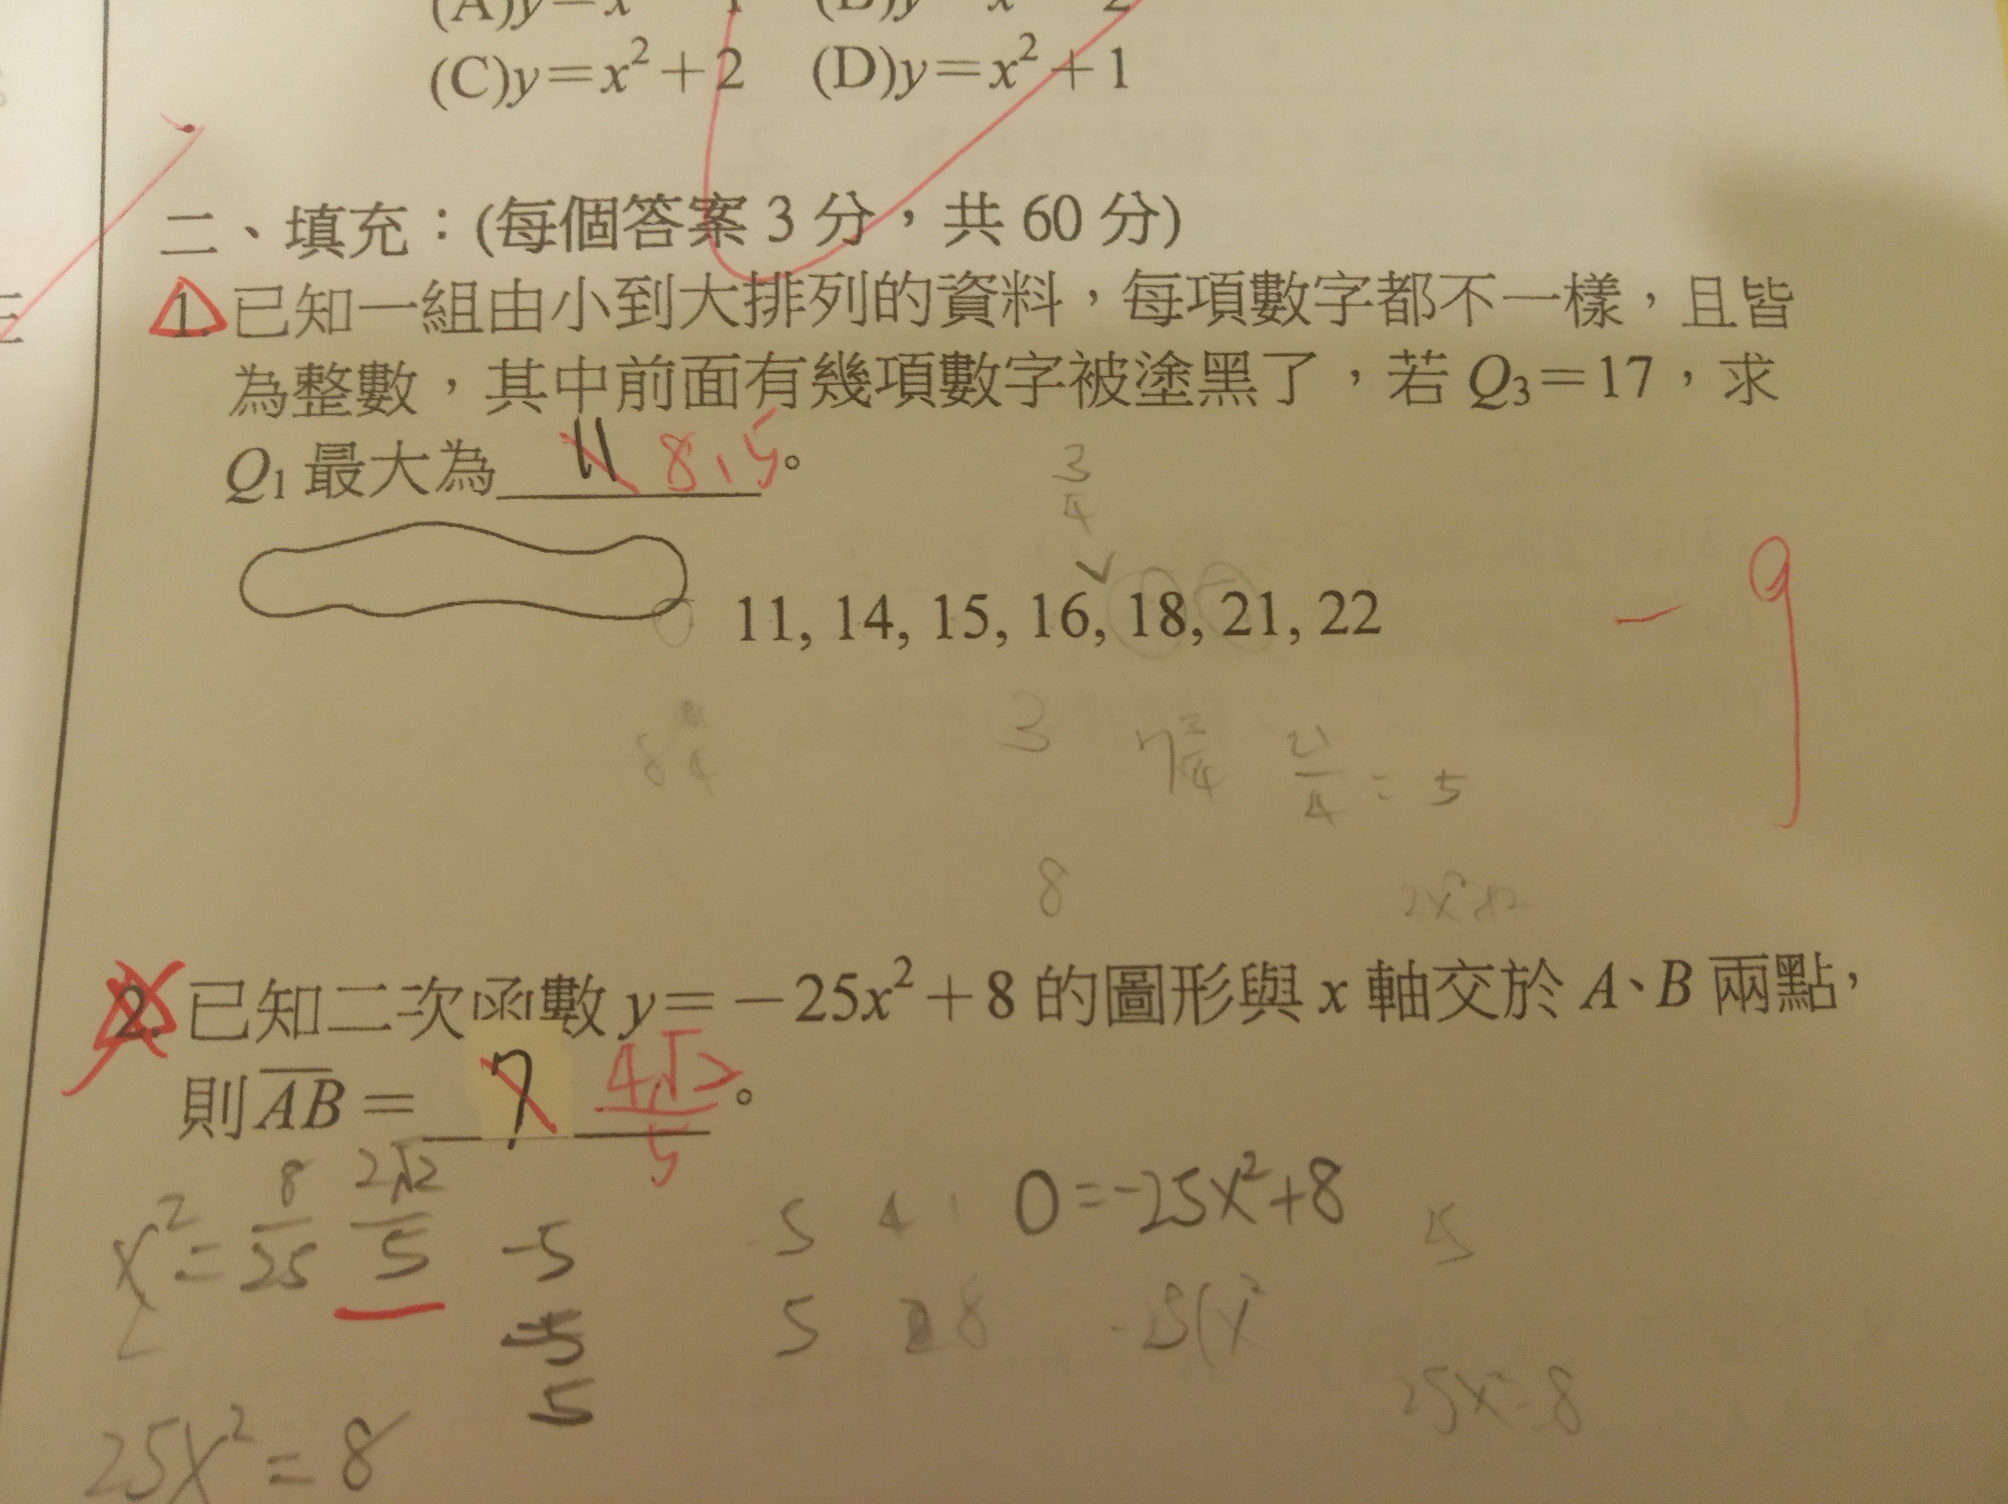 (C)y=x²+2 (D)y=x²+1
二、填充：(每個答案 3 分，共 60 分)
1. 已知一組由小到大排列的資料，每項數字都不一樣，且皆
為整數，其中前面有幾項數字被塗黑了，若 Q₃=17，求
Q₁ 最大為 11 8.5。
3/4
11, 14, 15, 16, 18, 21, 22
-9
3
21/4 = 5
8
2. 已知二次函數 y=-25x²+8 的圖形與 x 軸交於 A、B 兩點，
則 AB= 7 4√2/5。
x²=8/25 2√2/5 -5 -5 4 0=-25x²+8
-5 5 8 -25(x²
5 25x²=8
25x²=8